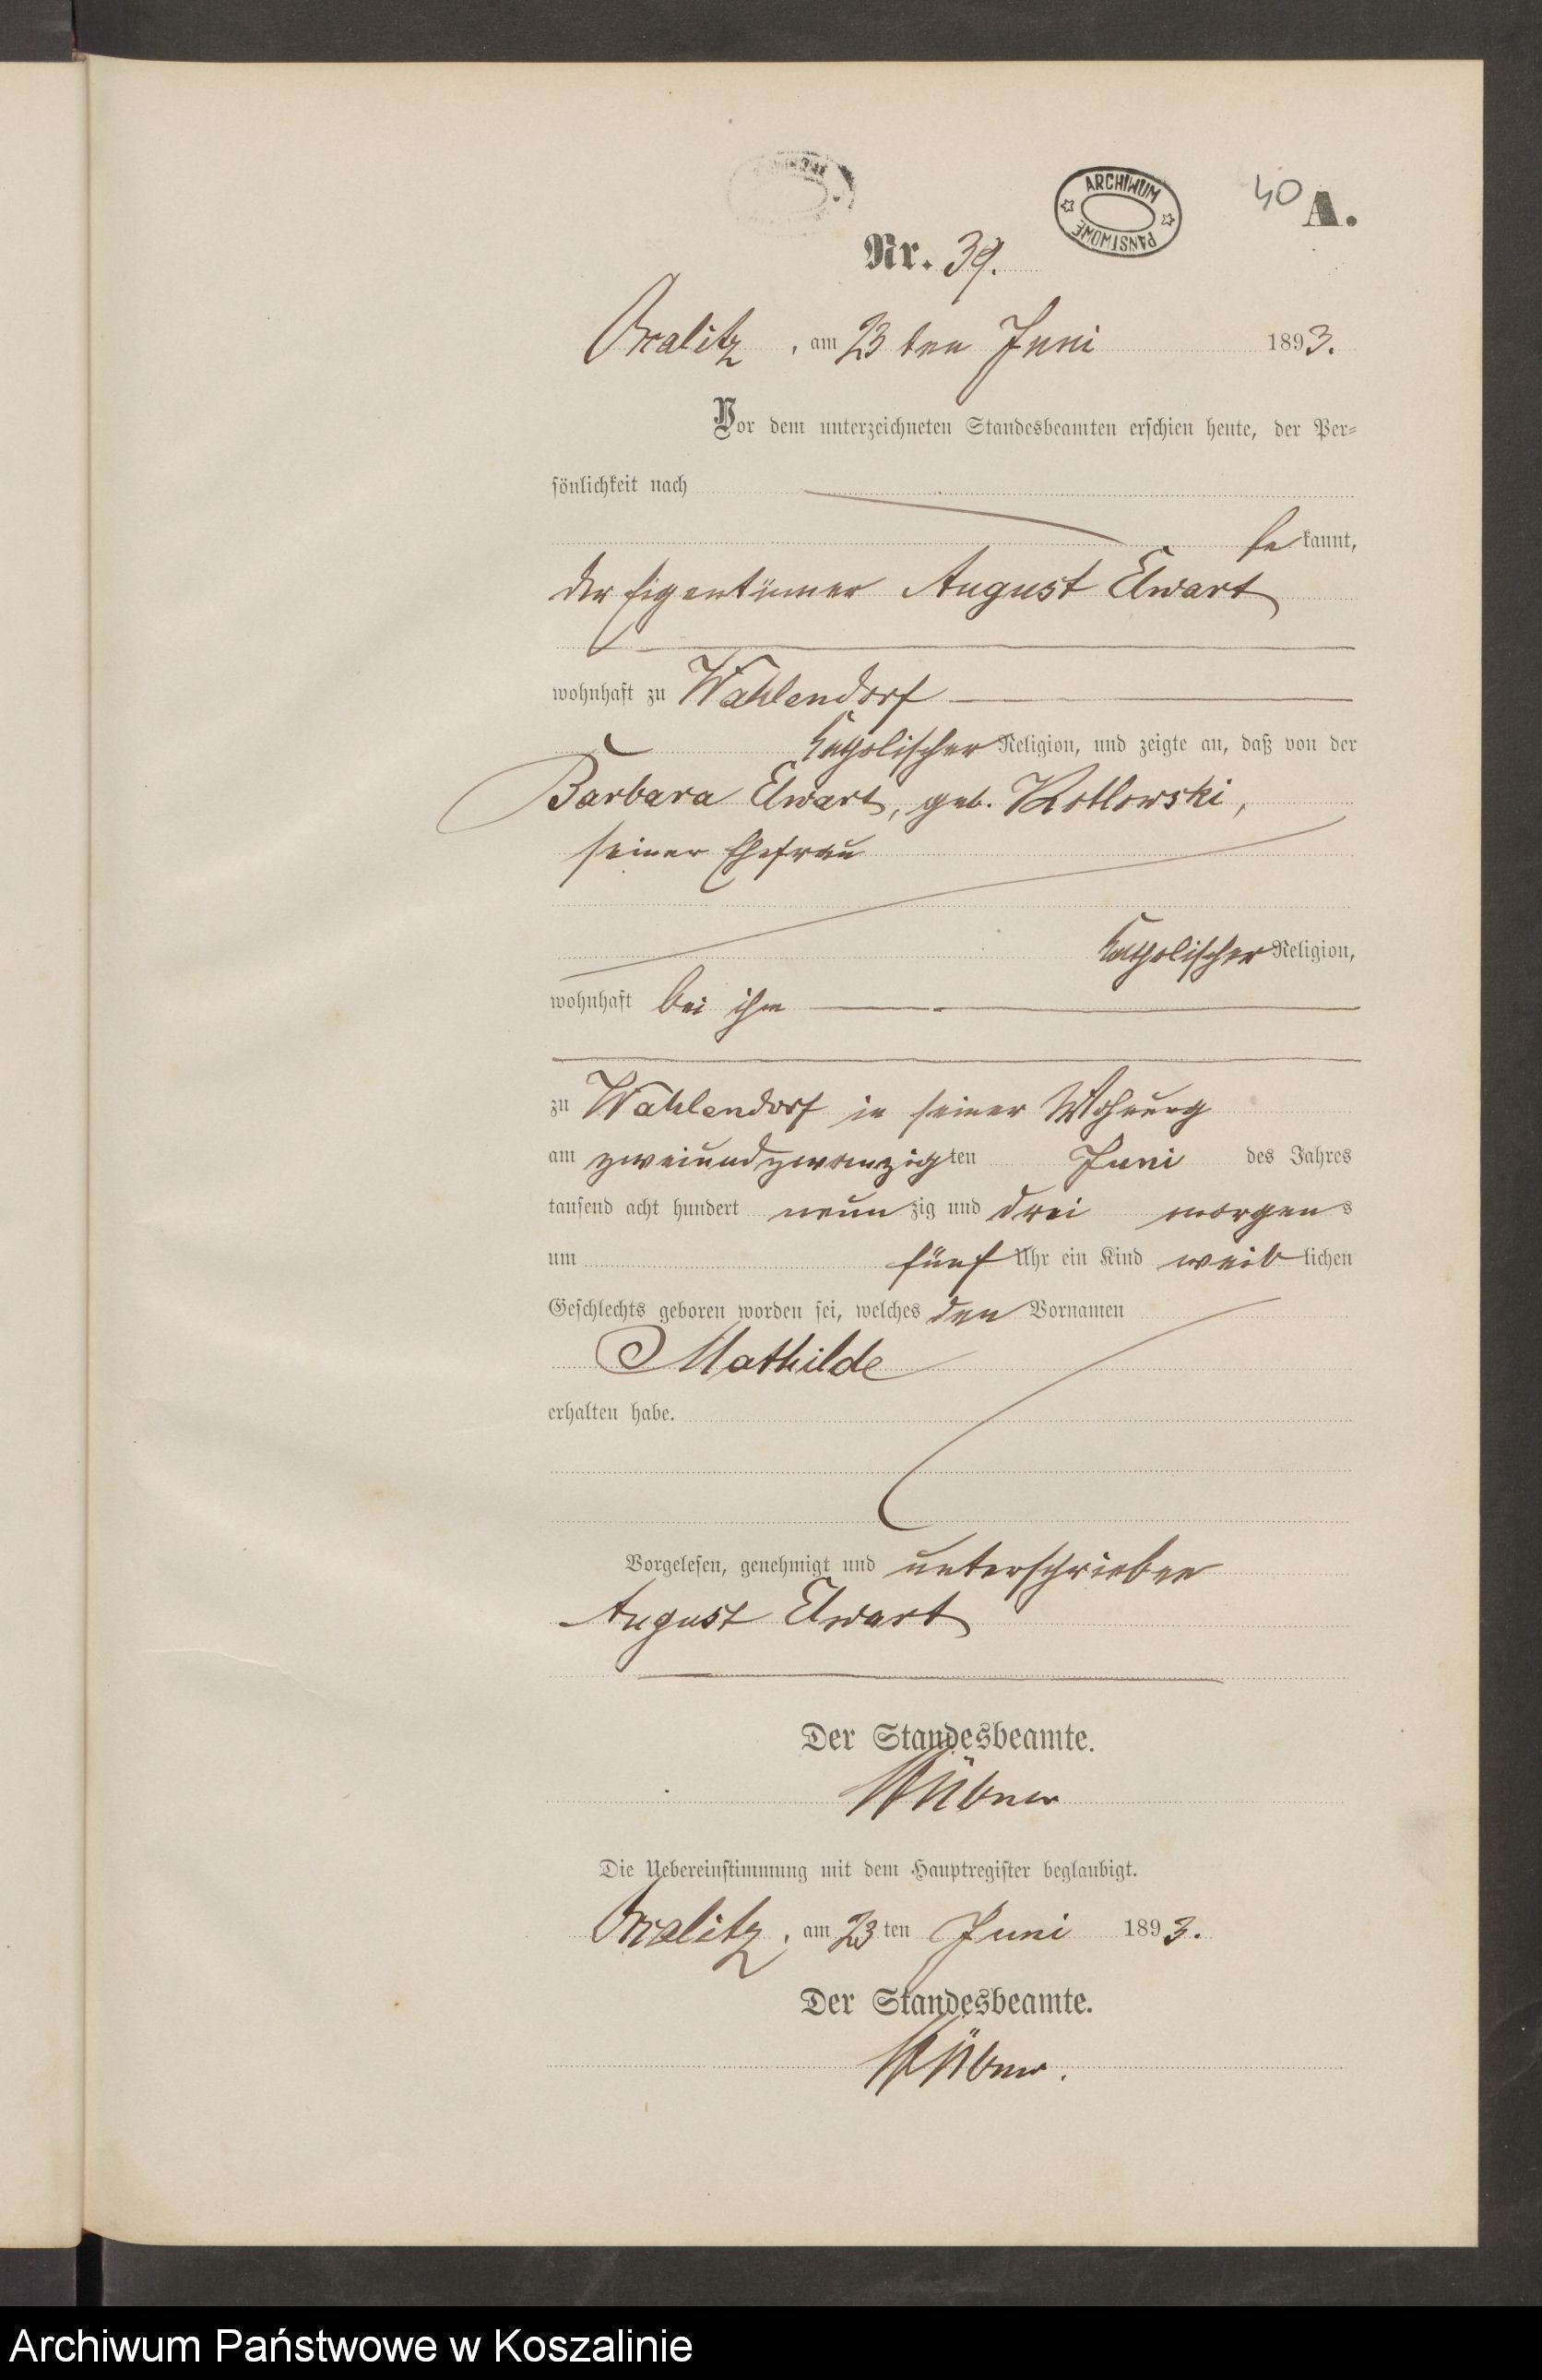 40 A.
ARCHIWUM PAŃSTWOWE
Nr. 39.
Oxalitz, am 23 ten Juni 1893.
Vor dem unterzeichneten Standesbeamten erschien heute, der Per=
sönlichkeit nach
be kannt,
der Eigentümer August Elwart
wohnhaft zu Wahlendorf
katholischer Religion, und zeigte an, daß von der
Barbara Elwart, geb. Kotlowski,
seiner Ehefrau
katholischer Religion,
wohnhaft bei ihm
zu Wahlendorf in seiner Wohnung
am zweiundzwanzig ten Juni des Jahres
tausend acht hundert neun zig und drei morgen s
um fünf Uhr ein Kind weib lichen
Geschlechts geboren worden sei, welches den Vornamen
Mathilde
erhalten habe.
Vorgelesen, genehmigt und unterschrieben
August Elwart
Der Standesbeamte.
Die Uebereinstimmung mit dem Hauptregister beglaubigt.
Oxalitz, am 23 ten Juni 1893.
Der Standesbeamte.
Archiwum Państwowe w Koszalinie